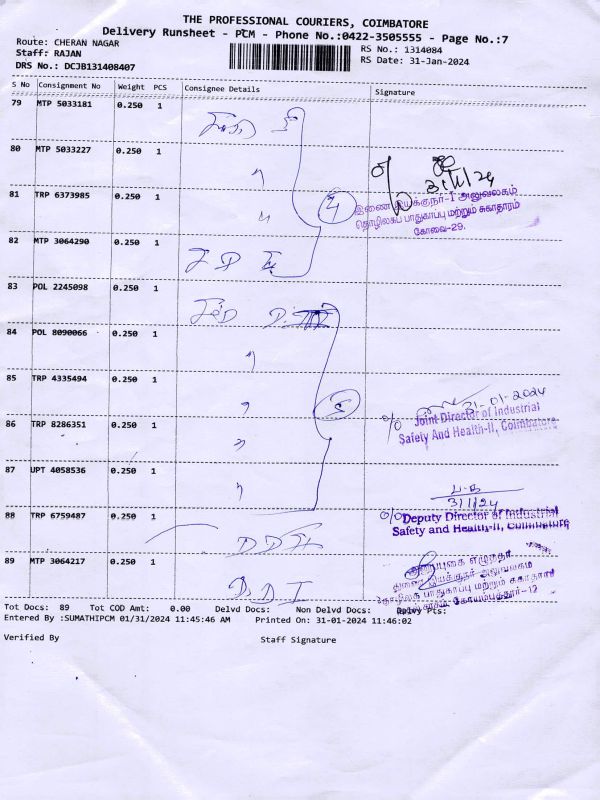 THE PROFESSIONAL COURIERS, COIMBATORE
Delivery Runsheet - PCM - Phone No.:0422-3505555 - Page No.:7
Route: CHERAN NAGAR
RS No.: 1314084
Staff: RAJAN
RS Date: 31-Jan-2024
DRS No.: DCJB131408407
S No Consignment No Weight PCS Consignee Details Signature
79 MTP 5033181 0.250 1
80 MTP 5033227 0.250 1
31/1/24
81 TRP 6373985 0.250 1
4
இணை இயக்குநர்-I அலுவலகம்
தொழிலகப் பாதுகாப்பு மற்றும் சுகாதாரம்
கோவை-29.
82 MTP 3064290 0.250 1
83 POL 2245098 0.250 1
84 POL 8090066 0.250 1
85 TRP 4335494 0.250 1
5
31-01-2024
Joint Director of Industrial
Safety And Health-II, Coimbatore
86 TRP 8286351 0.250 1
87 UPT 4058536 0.250 1
31/1/24
Deputy Director of Industrial
Safety and Health-II, Coimbatore
88 TRP 6759487 0.250 1
89 MTP 3064217 0.250 1
DDI
Tot Docs: 89 Tot COD Amt: 0.00 Delvd Docs: Non Delvd Docs: Delvy Pts:
Entered By :SUMATHIPCM 01/31/2024 11:45:46 AM Printed On: 31-01-2024 11:46:02
Verified By Staff Signature